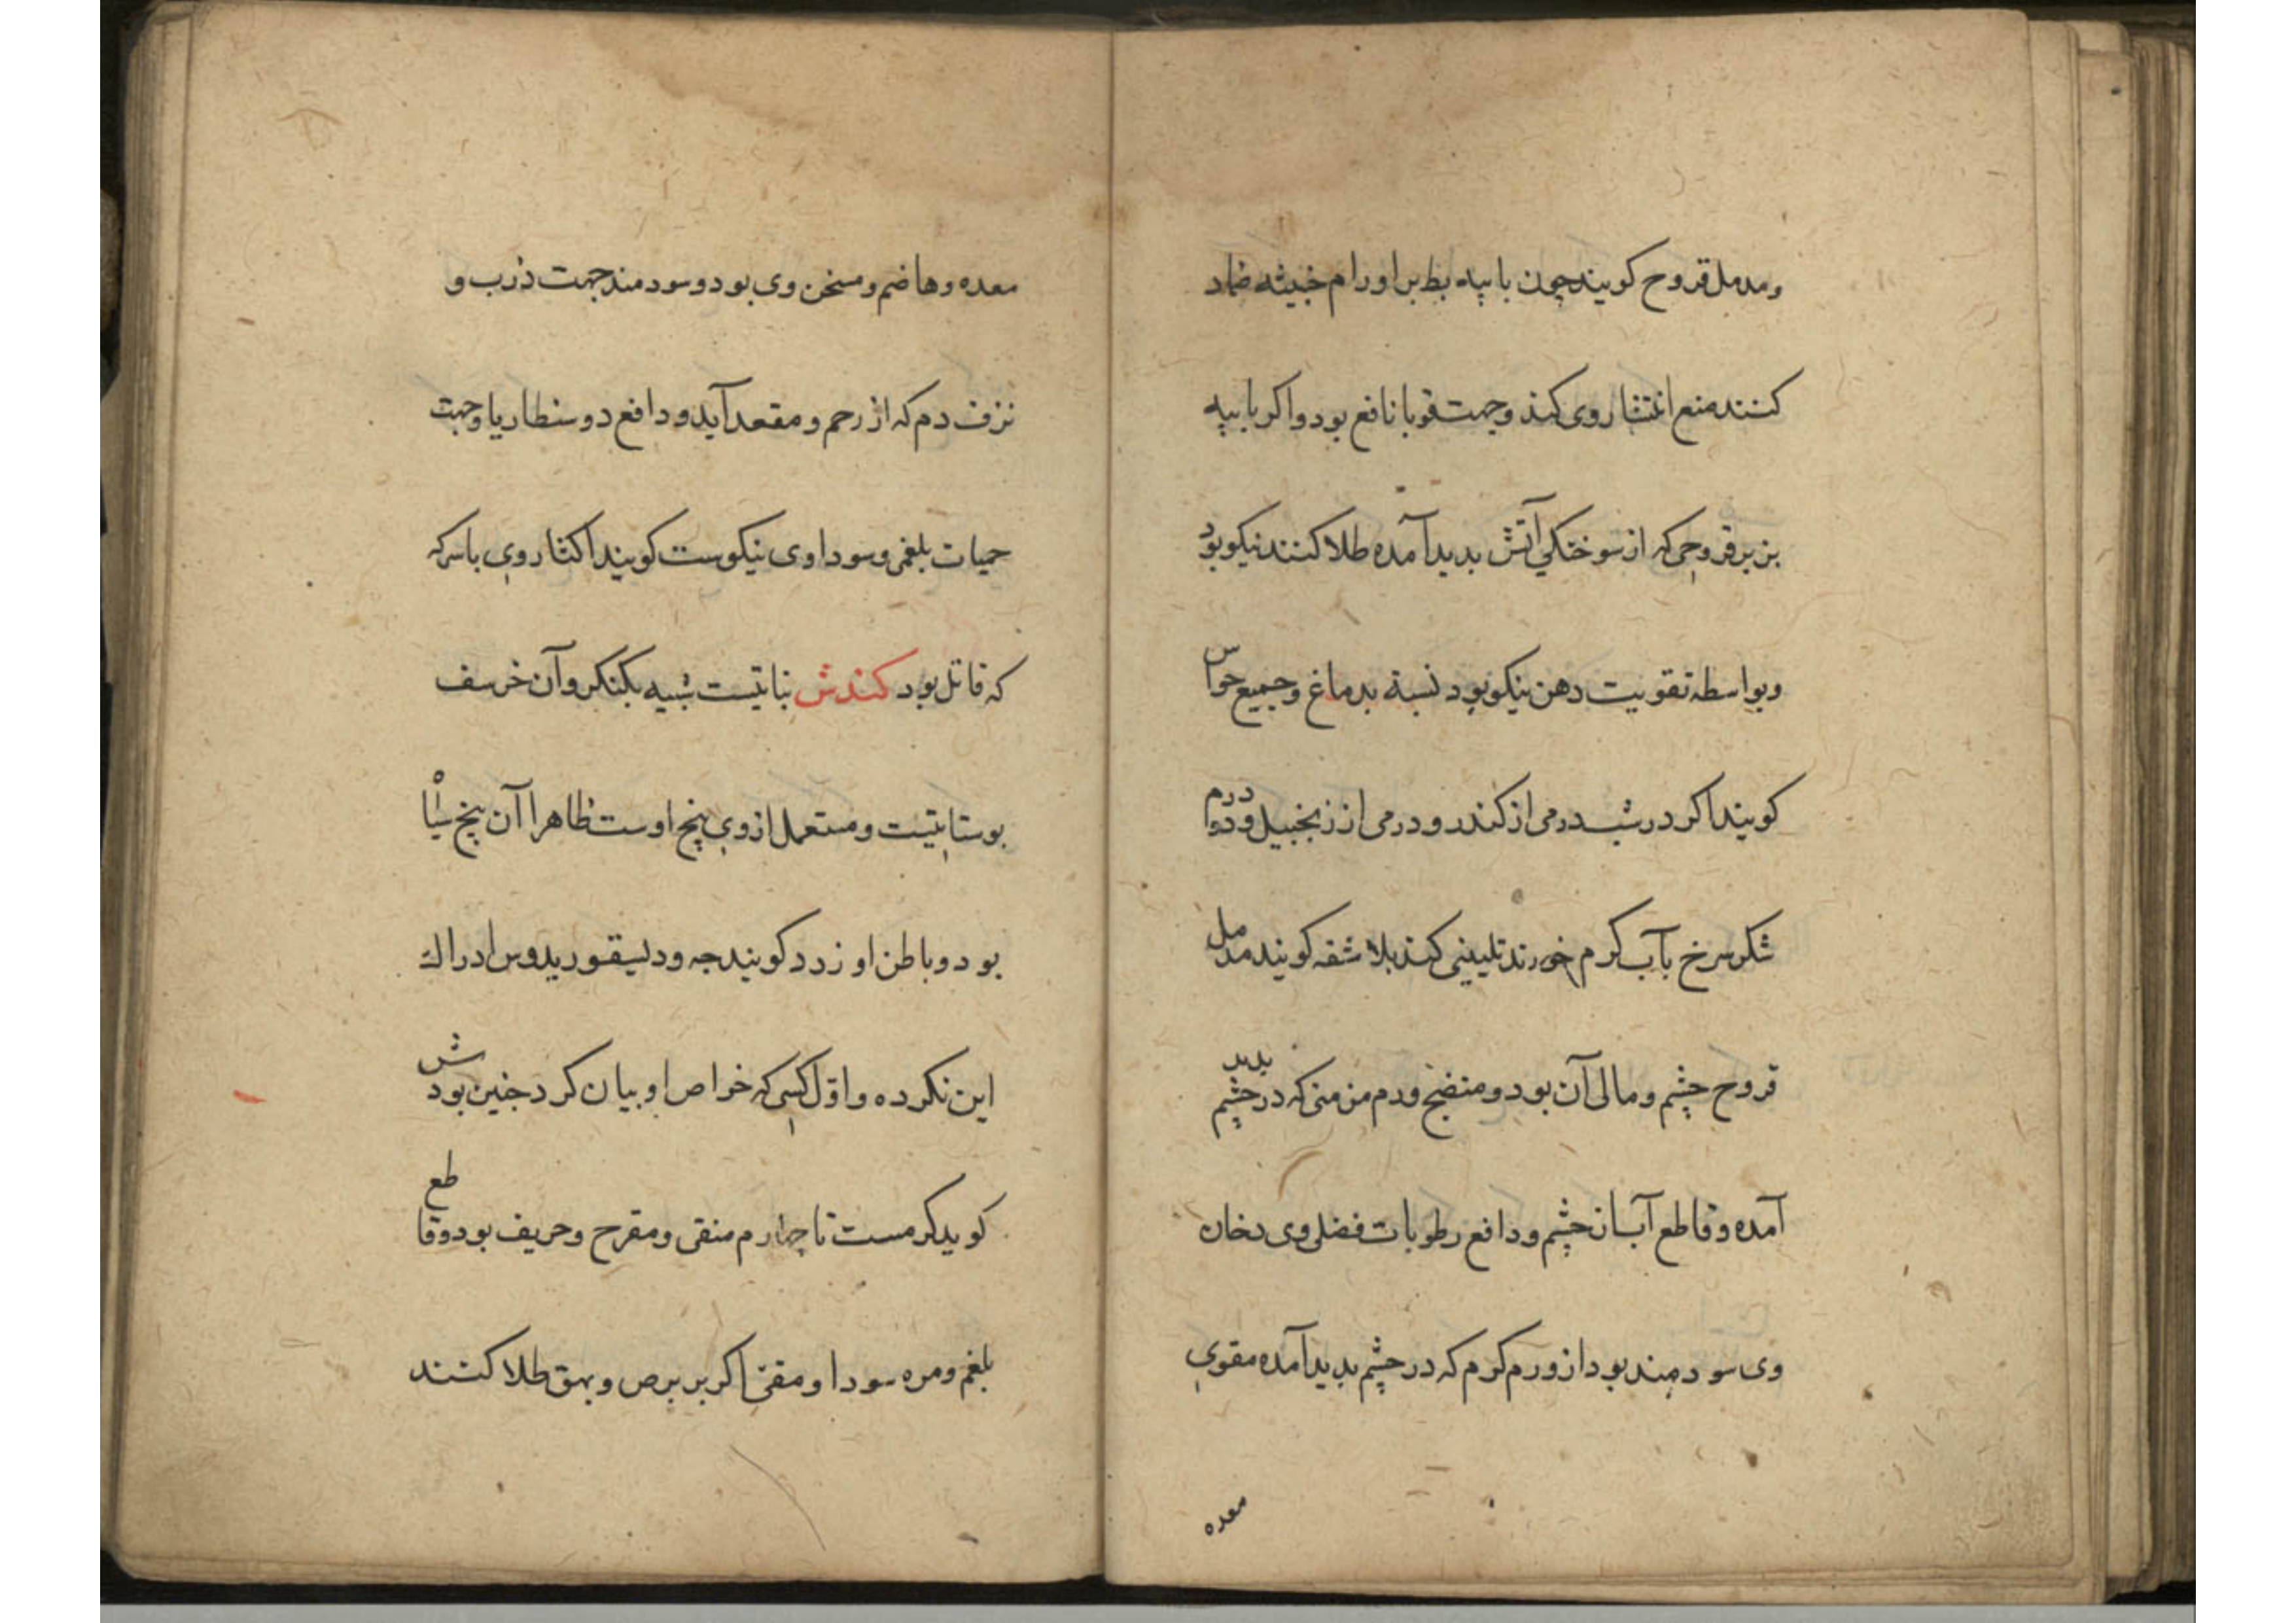 ومدمل قروح کویند چون با پیه بط بر اورام خبیثه ضماد
کنند منع انتشار وی کند وجهت قوبا نافع بود واکر با پیه
بز بر قروحی که از سوختکی آتش بدید آمده طلا کنند نیکو بود
وبواسطه تقویت دهن نیکو بود نسبة بدماغ وجمیع حواس
کویند اکر در شب درمی از کندر ودرمی از زنجبیل ودو درم
شکر سرخ بآب کرم خورند تلیینی کند بلا شقه کویند مدمل
قروح چشم ومالی آن بود ومنضج ورم مزمنی که در چشم بدید
آمده وقاطع آب سان چشم ودافع رطوبات فضلی وی دخان
وی سودمند بود از ورم کرم که در چشم بدید آمده مقوی
معده
معده وهاضم ومسخن وی بود وسودمند جهت ذرب و
نزف دم که از رحم ومقعد آید ودافع دوسنطاریا وجهت
حمیات بلغمی وسوداوی نیکوست کویند اکثار وی باسرکه
که قاتل بود کندش نباتیست شبیه بکنکر وآن خرسف
بوستانیست ومستعمل از وی بیخ اوست ظاهرا آن بیخ سیاه
بود وباطن او زرد کویند جه ودیسقوریدوس ادراك
این نکرده واول کسی که خواص او بیان کرد جنین بودش
کوید کرمست تا چهارم منقی ومقرح وحریف بود وقاطع
بلغم ومره سودا ومقئ اکر بر برص وبهق طلا کنند